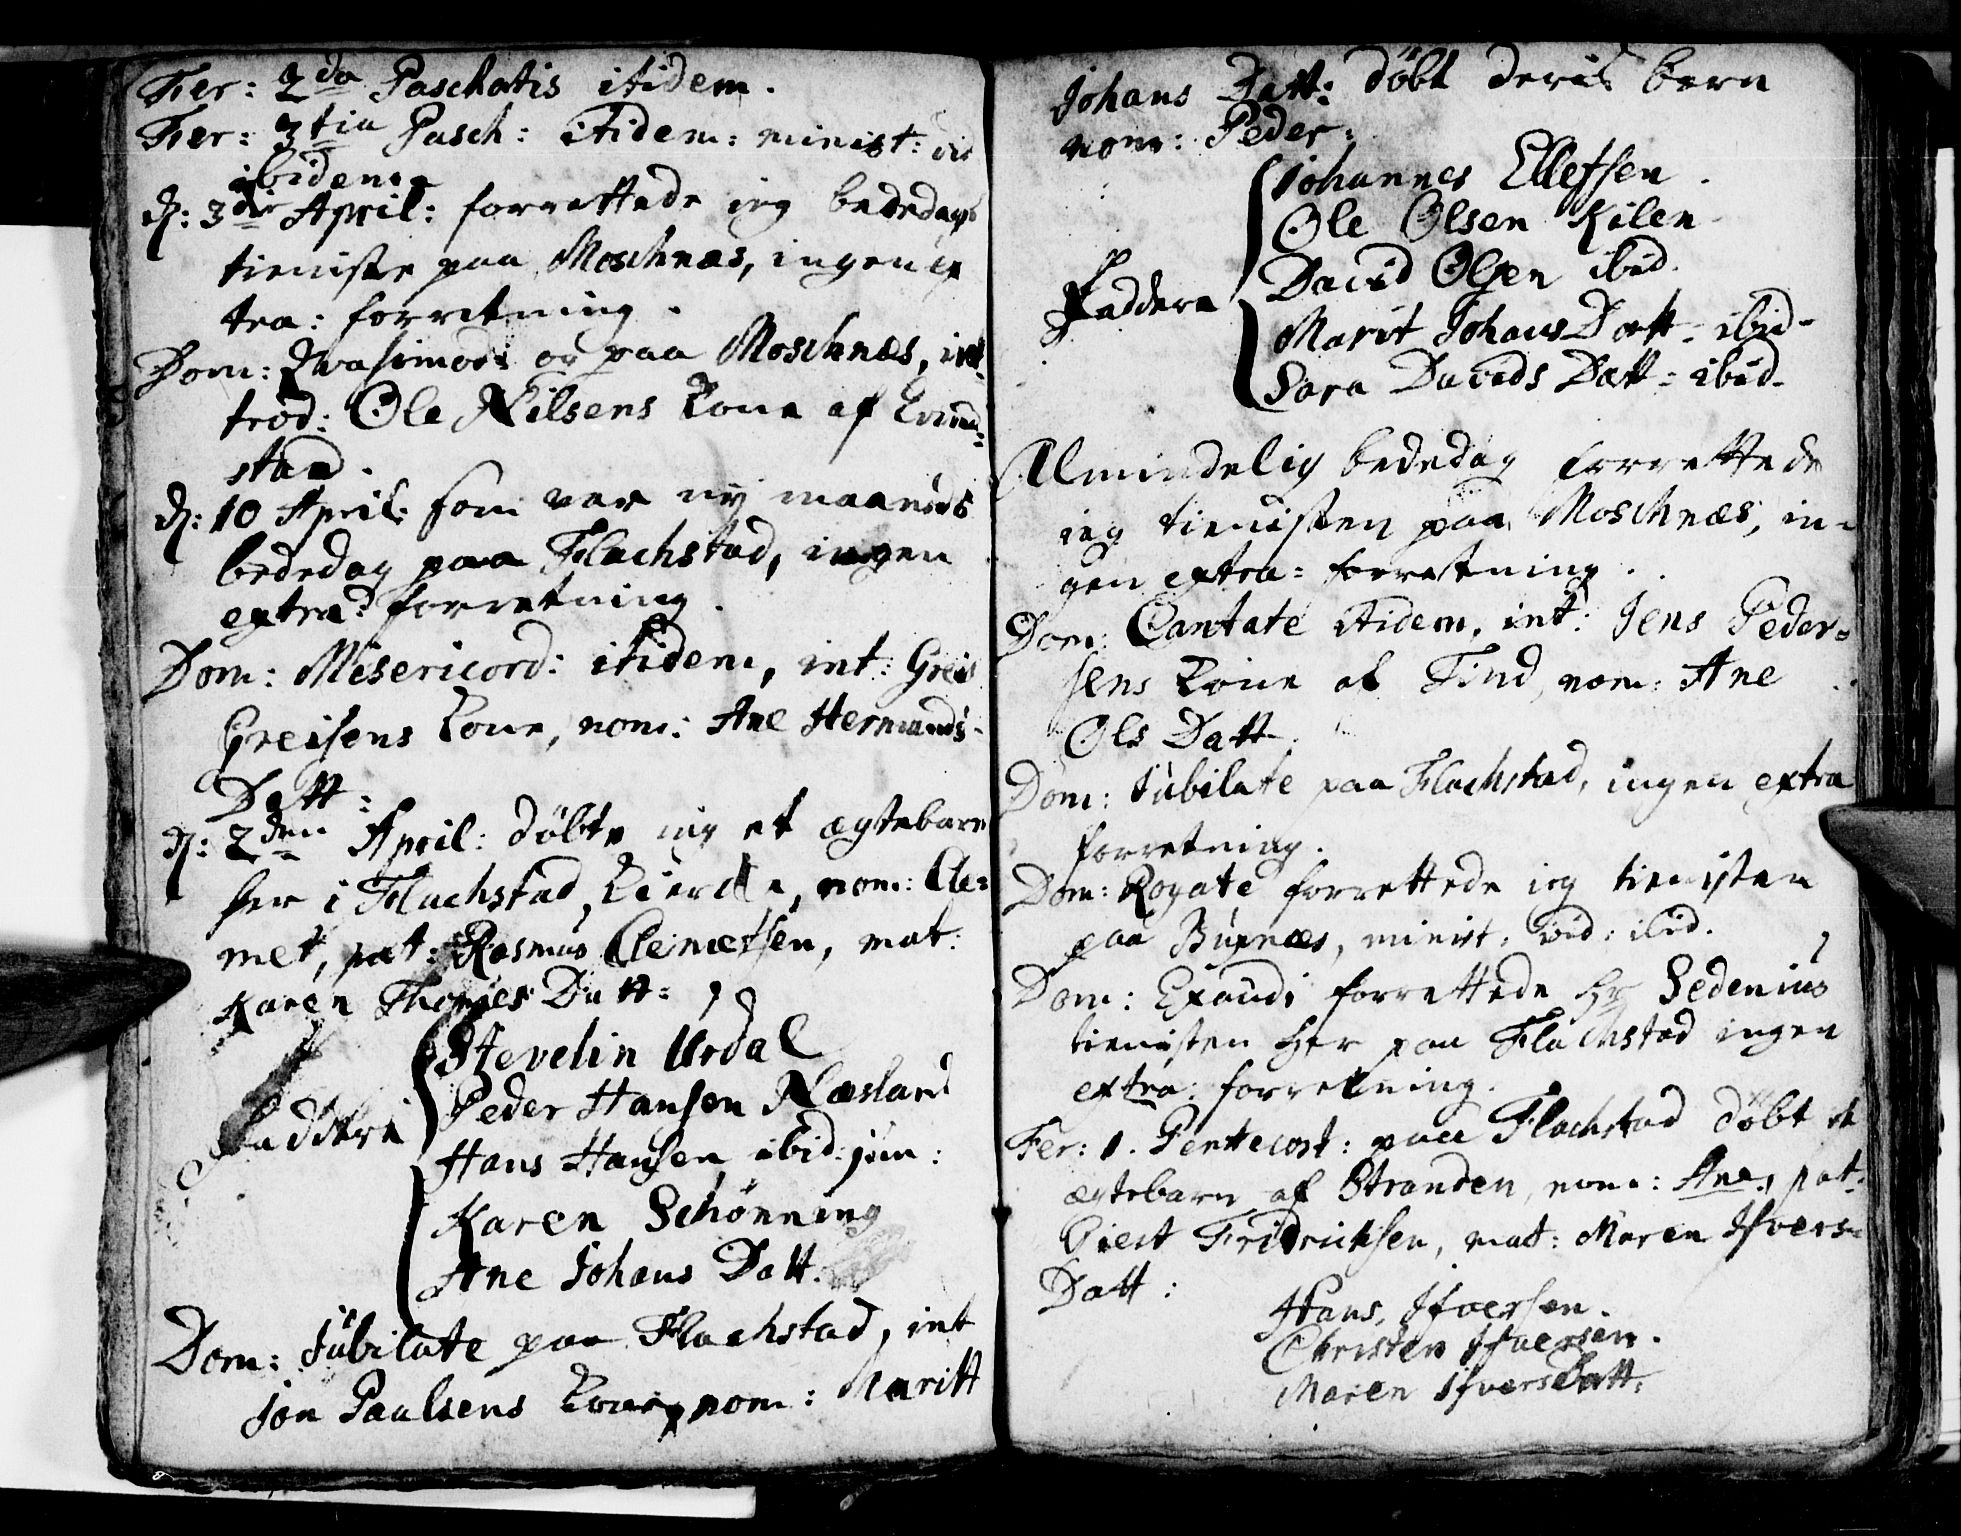 Fer: 2da Paschatis itidem.
Fer: 3tia Pasch: itidem: minist: vid
ibidem.
d: 3die April: forrettede ieg bededags
tieniste paa Moschnæs, ingen ex
tra: forretning.
Dom: Qvasimodi og paa Moschnæs, int
trod: Ole Nilsens Kone af
stad.
d: 10 April: som var ny maaneds
bededag paa Flachstad, ingen
extra: forretning.
Dom: Misericord: itidem, int: Greis
Greisens Kone, nom: Ane Hermands
Datt:
d: 2den April: døbte ieg et ægtebarn
her i Flachstad Kircke, nom: Cle=
met, pat: Rasmus Clemetsen, mat:
Karen Thomes Datt:
Faddere
Stevelin Urdal
Peder Hansen Næsland
Hans Hansen ibid: jun:
Karen Schønning
Ane Johans Datt.
Dom: Jubilate paa Flachstad, int
Jon Paulsens Kone, nom: Maritt
Johans Datt: døbt deris barn
nom: Peder:
Faddere
Johannes Ellefsen.
Ole Olsen Kilen
David Olsen ibid.
Marit Johans Datt: ibid-
Sara Davids Datt: ibid-
Almindelig bededag forrettede
ieg tienisten paa Moschnæs, in=
gen extra: forretning.
Dom: Cantate itidem, int: Jens Peder=
sens Kone af Find, nom: Ane
Ols Datt.
Dom: Jubilate paa Flachstad, ingen extra
forretning.
Dom: Rogate forrettede ieg tienisten
paa Buxnæs, minist: vid: ibid.
Dom: Exaudi forrettede Hr Sedenius
tienisten her paa Flachstad ingen
extra: forretning.
Fer: 1. Pentecost: paa Flachstad døbt et
ægtebarn af Stranden, nom: Ane, pat:
Fridrichsen, mat: Maren Ifvers=
Datt:
Hans Ifversen.
Christen Ifversen.
Maren Ifvers Datt.